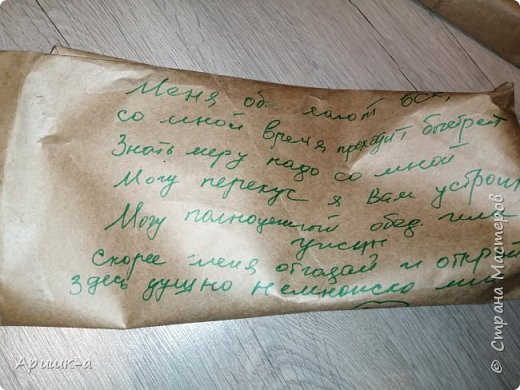 Меня обожают все,
со мной время проходит быстрей
Знать меру надо со мной
Могу перекус я Вам устрои
Могу полноценный обед или
ужин
Скорее меня отгадай и открой
Здесь душно немножко мне
Аришк-а
© Страна Мастеров